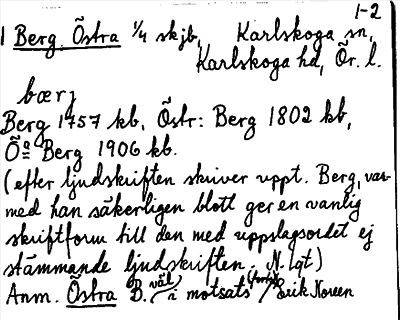 1-2
1 Berg, Östra 1/4 skjb, Karlskoga sn,
Karlskoga hd, Ör. l.
bærj
Berg 1757 kb, Östr: Berg 1802 kb,
Öa Berg 1906 kb.
(efter ljudskriften skriver uppt. Berg, var-
med han säkerligen blott ger en vanlig
skriftform till den med uppslagsordet ej
stämmande ljudskriften. N. Lgt)
Anm. Östra B. väl i motsats Erik Noreen